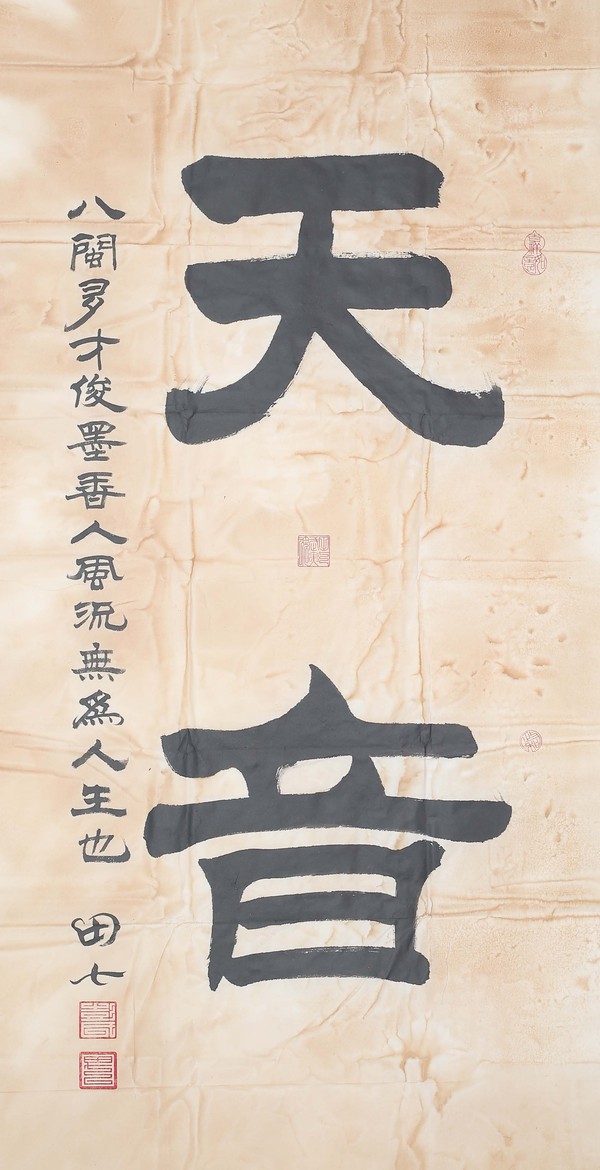 天音
八閩多才俊墨香人風流無為人生也 田七